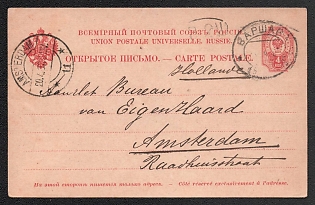 ВСЕМІРНЫЙ ПОЧТОВЫЙ СОЮЗЪ. РОССІЯ.
UNION POSTALE UNIVERSELLE. RUSSIE.
ОТКРЫТОЕ ПИСЬМО. — CARTE POSTALE.
ВАРШАВА
Hollande
AMSTERDAM
Aan het Bureau
van Eigen Haard
Amsterdam
Raadhuisstraat
На этой сторонѣ пишется только адресъ. — Côté réservé exclusivement à l'adresse.